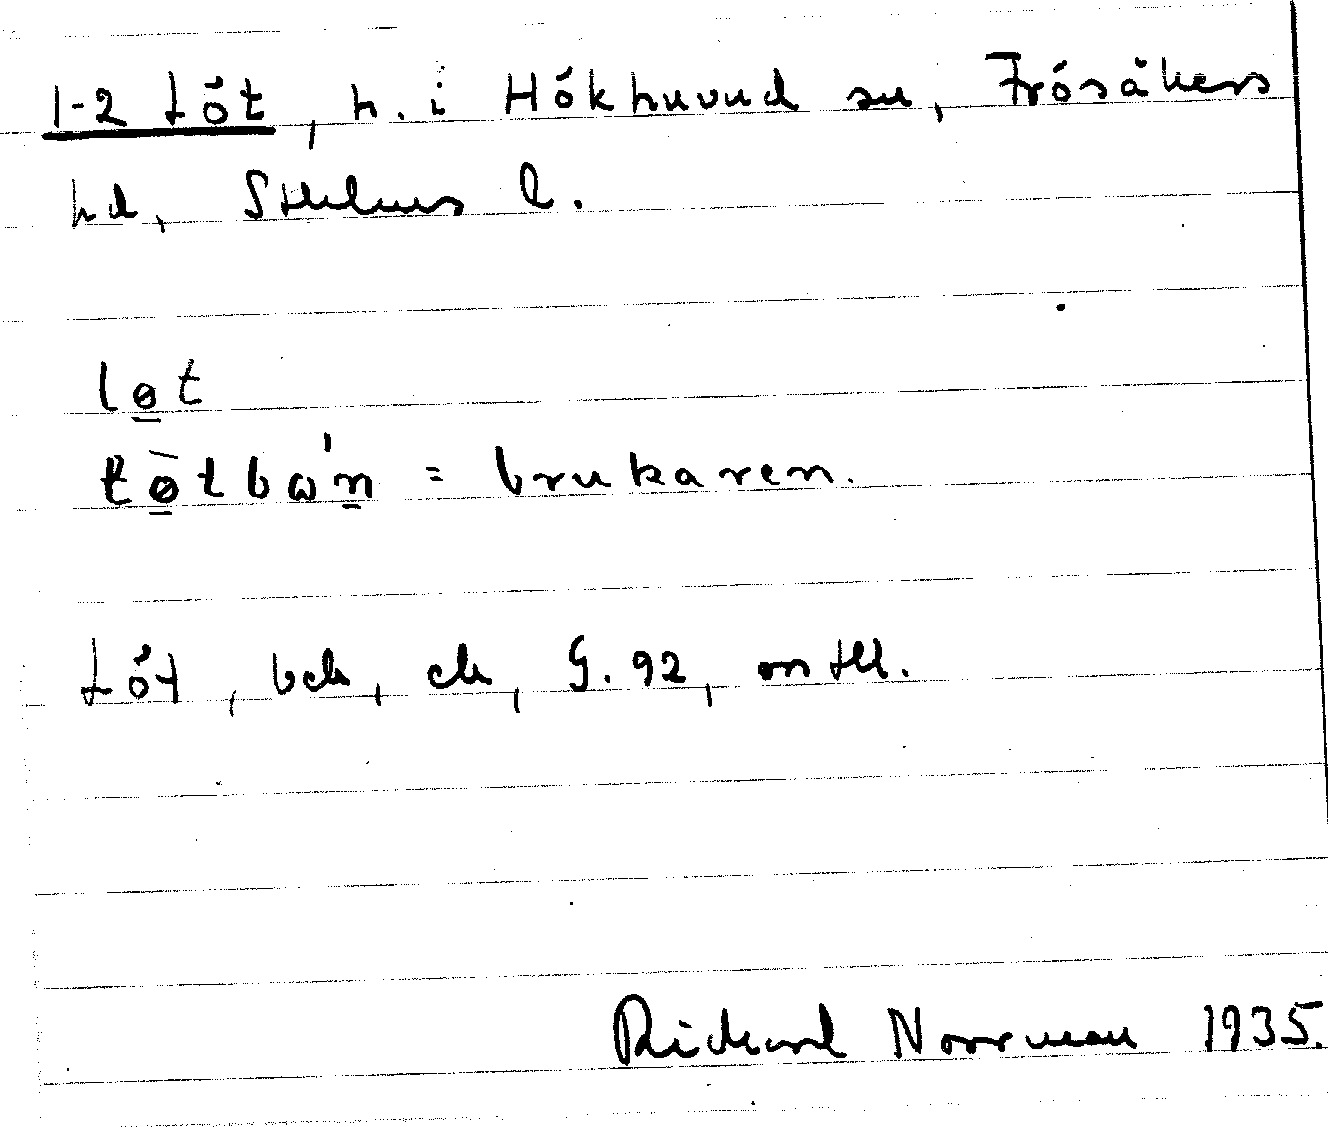 1-2 Löt, h. i Hökhuvud sn, Frösåkers
hd, Sthlms l.
løt
løtbωn = brukaren.
Löt, bch, ek, G. 92, mtl.
Rickard Norrman 1935.